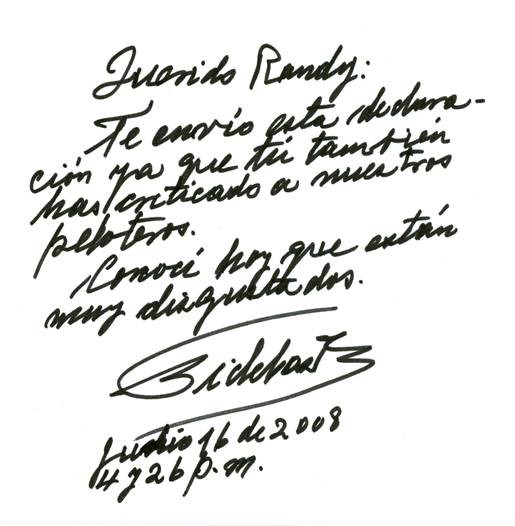 Querido Randy:
Te envío esta declara-
ción ya que tú también
has criticado a nuestros
peloteros.
Conocí hoy que están
muy disgustados.
Junio 16 de 2008
4 y 26 p.m.